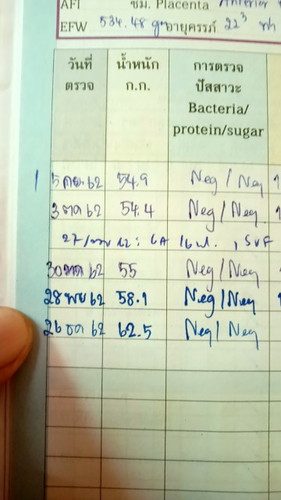 AFI ซม. Placenta Anterior
EFW 534.48 g อายุครรภ์ 22³ wk
วันที่ตรวจ น้ำหนัก ก.ก. การตรวจปัสสาวะ Bacteria/protein/sugar
5 กย 62 54.9 Neg / Neg
3 ตค 62 54.4 Neg / Neg
62 : GA 16 , SVF
30 ตค 62 55 Neg / Neg
28 พย 62 58.1 Neg / Neg
26 ธค 62 62.5 Neg / Neg